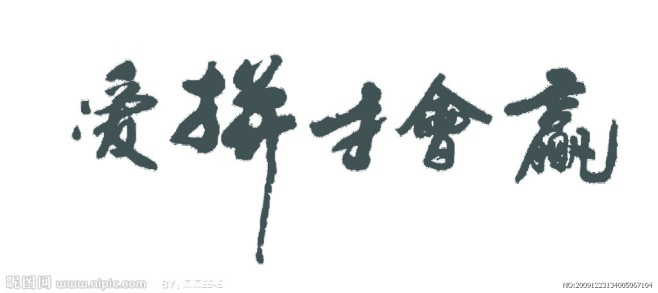 爱拼才會赢
昵图网 www.nipic.com
NO:20091223134005067104